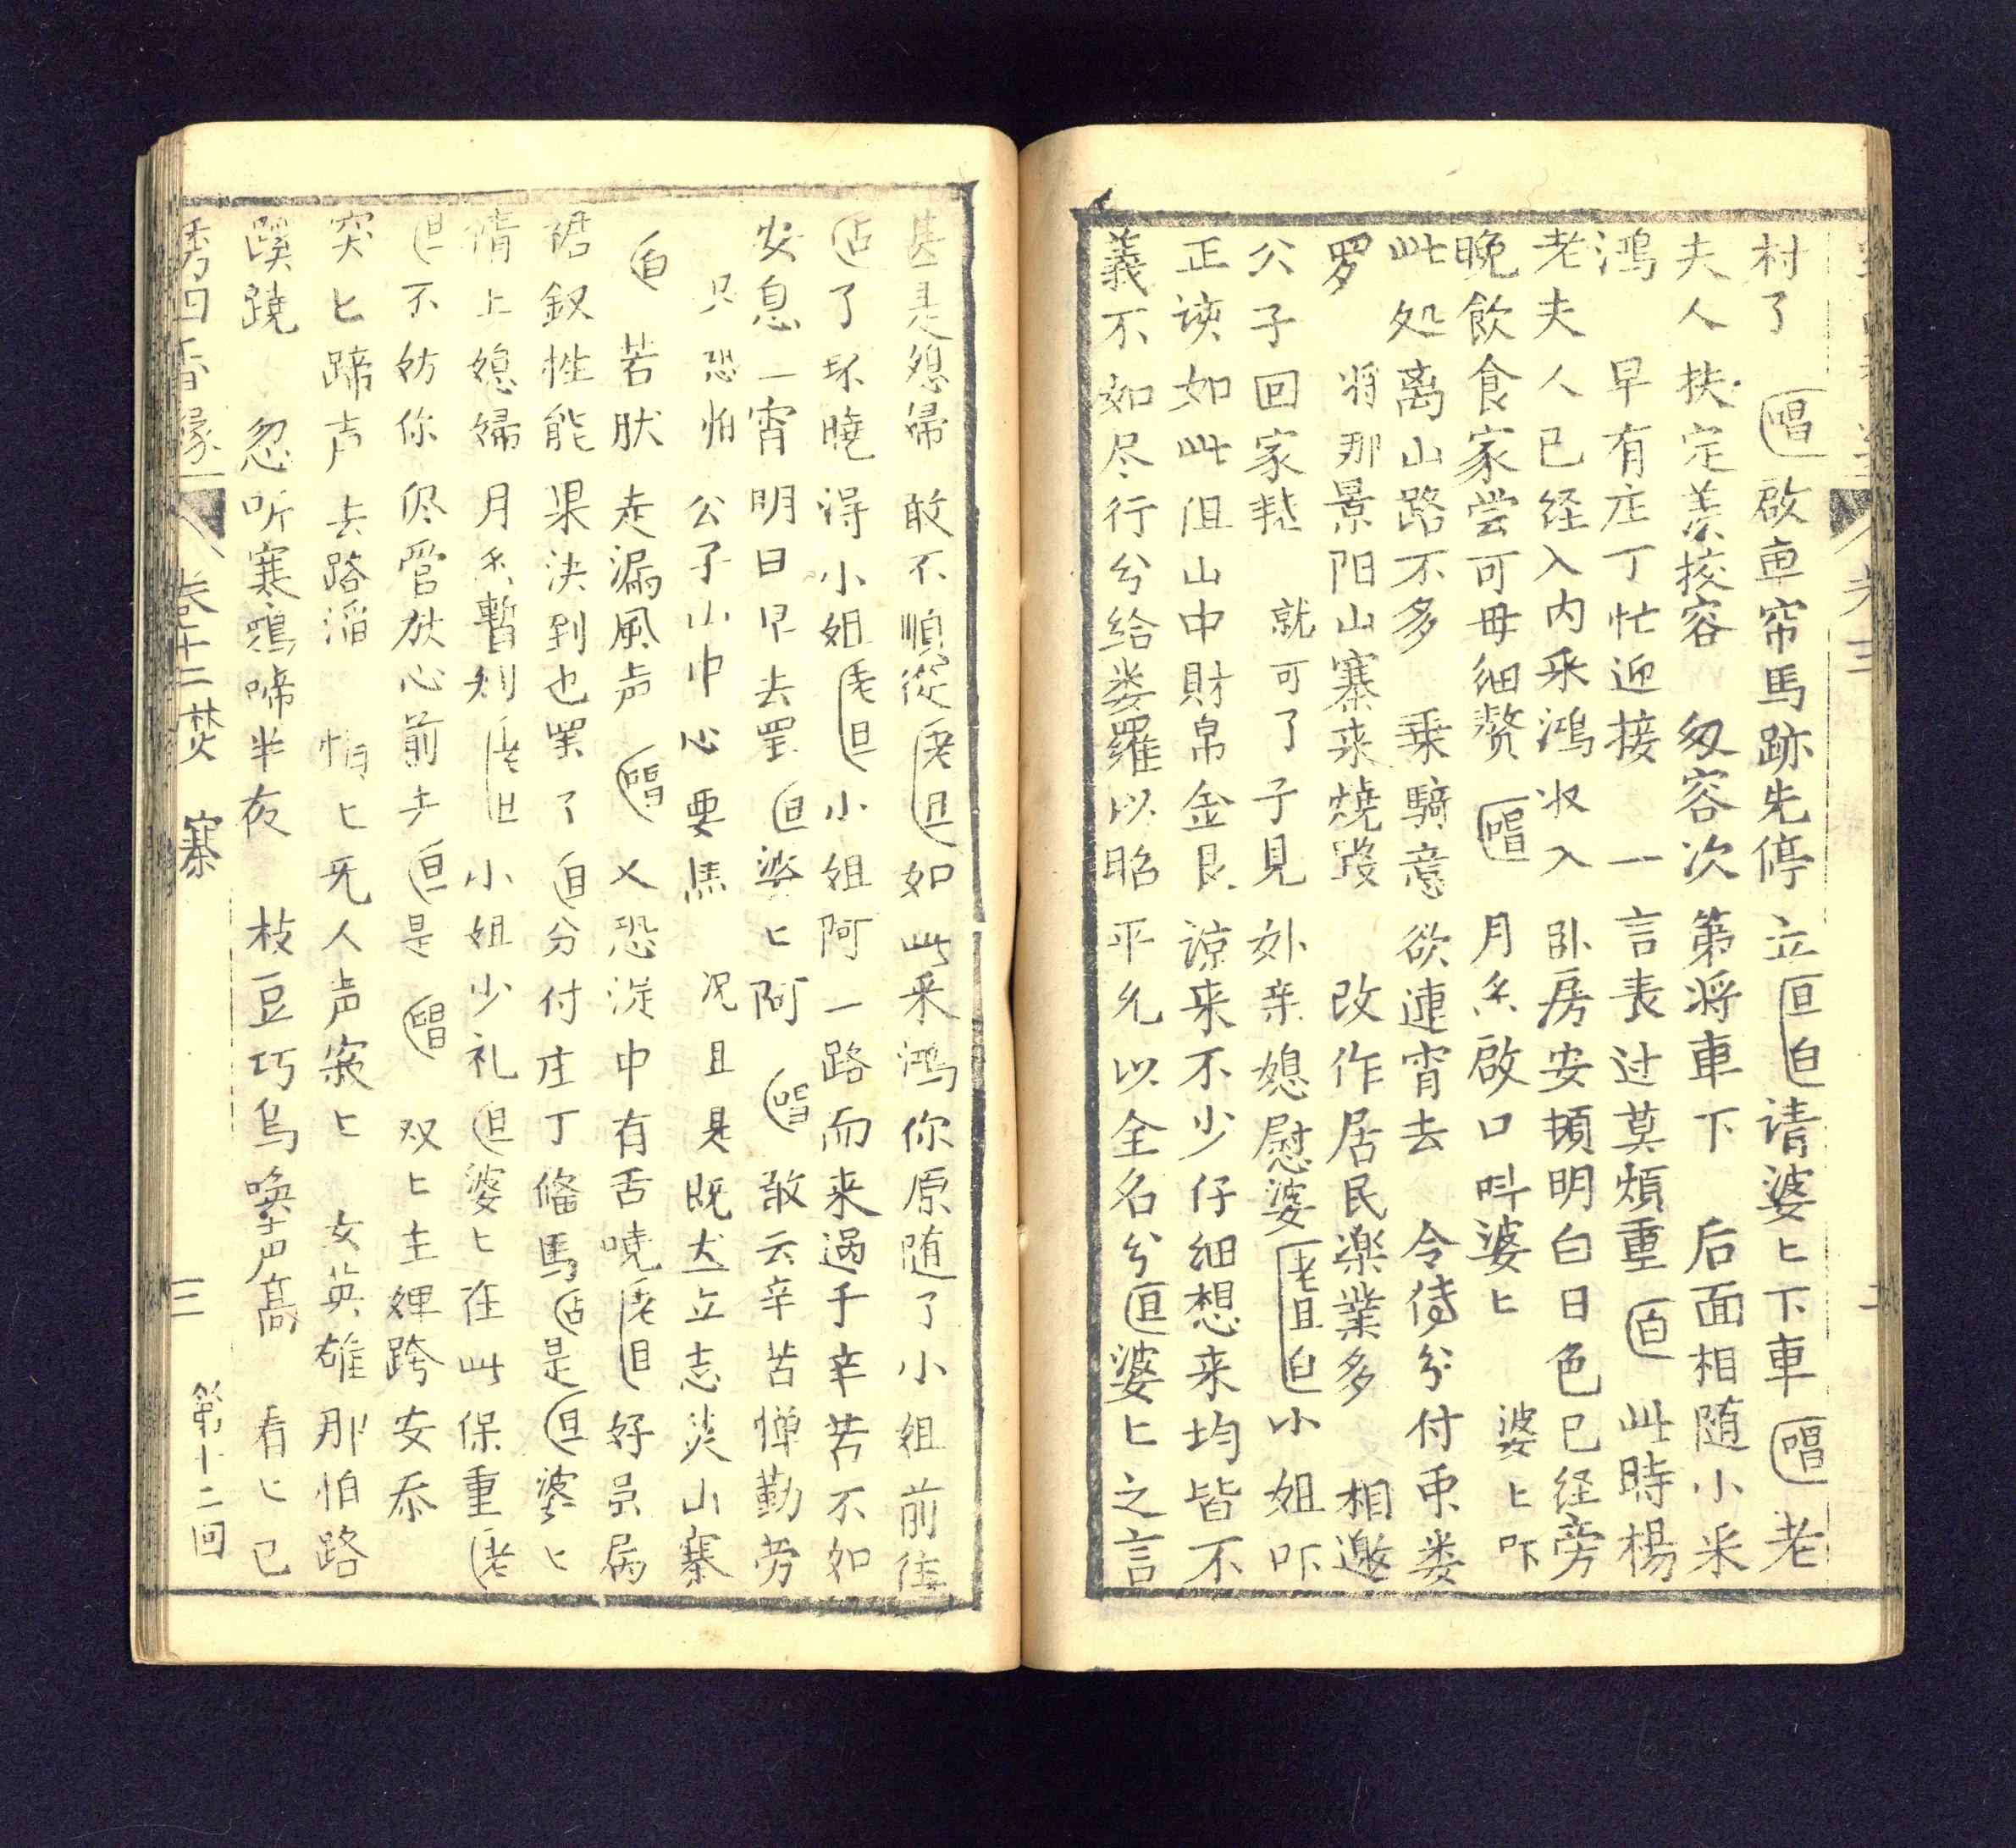 村了 唱 啟車帘馬跡先停立 旦白 请婆匕下車 唱 老
夫人扶定羡挍容 匆容次第將車下 后面相随小采
鴻 早有庄丁忙迎接 一言丧过莫煩重 白 此時楊
老夫人已经入内采鴻收入卧房安頓明白日色已经旁
晚飲食家尝可毋细赘 唱 月糸啟口呌婆匕 婆匕吓
此处离山路不多 乗騎意欲連宵去 令侍分付央娄
罗 将那景阳山寨来燒毀 改作居民楽業多 相邀
公子回家 就可了子見外亲媳慰婆 老旦白 小姐吓
正该如此但山中財帛金艮諒来不少仔细想来均皆不
義不如尽行分给娄羅以昭平允以全名分 旦 婆匕之言
甚是媳婦敢不順從 老旦 如此采鸿你原随了小姐前往
占 了环曉得小姐 老旦 小姐阿一路而来過于辛苦不如
安息一宵明日早去罢 旦 婆匕阿 唱 敢云辛苦惮勤劳
只恐怕公子山中心要焦 况且是既大立志炎山寨
白 若肰走漏風声 唱 又恐从中有舌嘵 老旦 好虽属
裙釵性能果决到也罢了 旦 分付庄丁俻馬 占 是 旦 婆匕
情上媳婦月糸暫别 老旦 小姐少礼 旦 婆匕在此保重 老
旦 不妨你侭管放心前去 旦 是 唱 双匕主婢跨安㤗
突匕蹄声去路滔 悄匕旡人声寂匕 女英雄那怕路
蹊蹺 忽听寒鴉啼半夜 枝豆巧鸟喚声高 看匕已
秀四香缘 卷十二 焚寨 三 第十二回